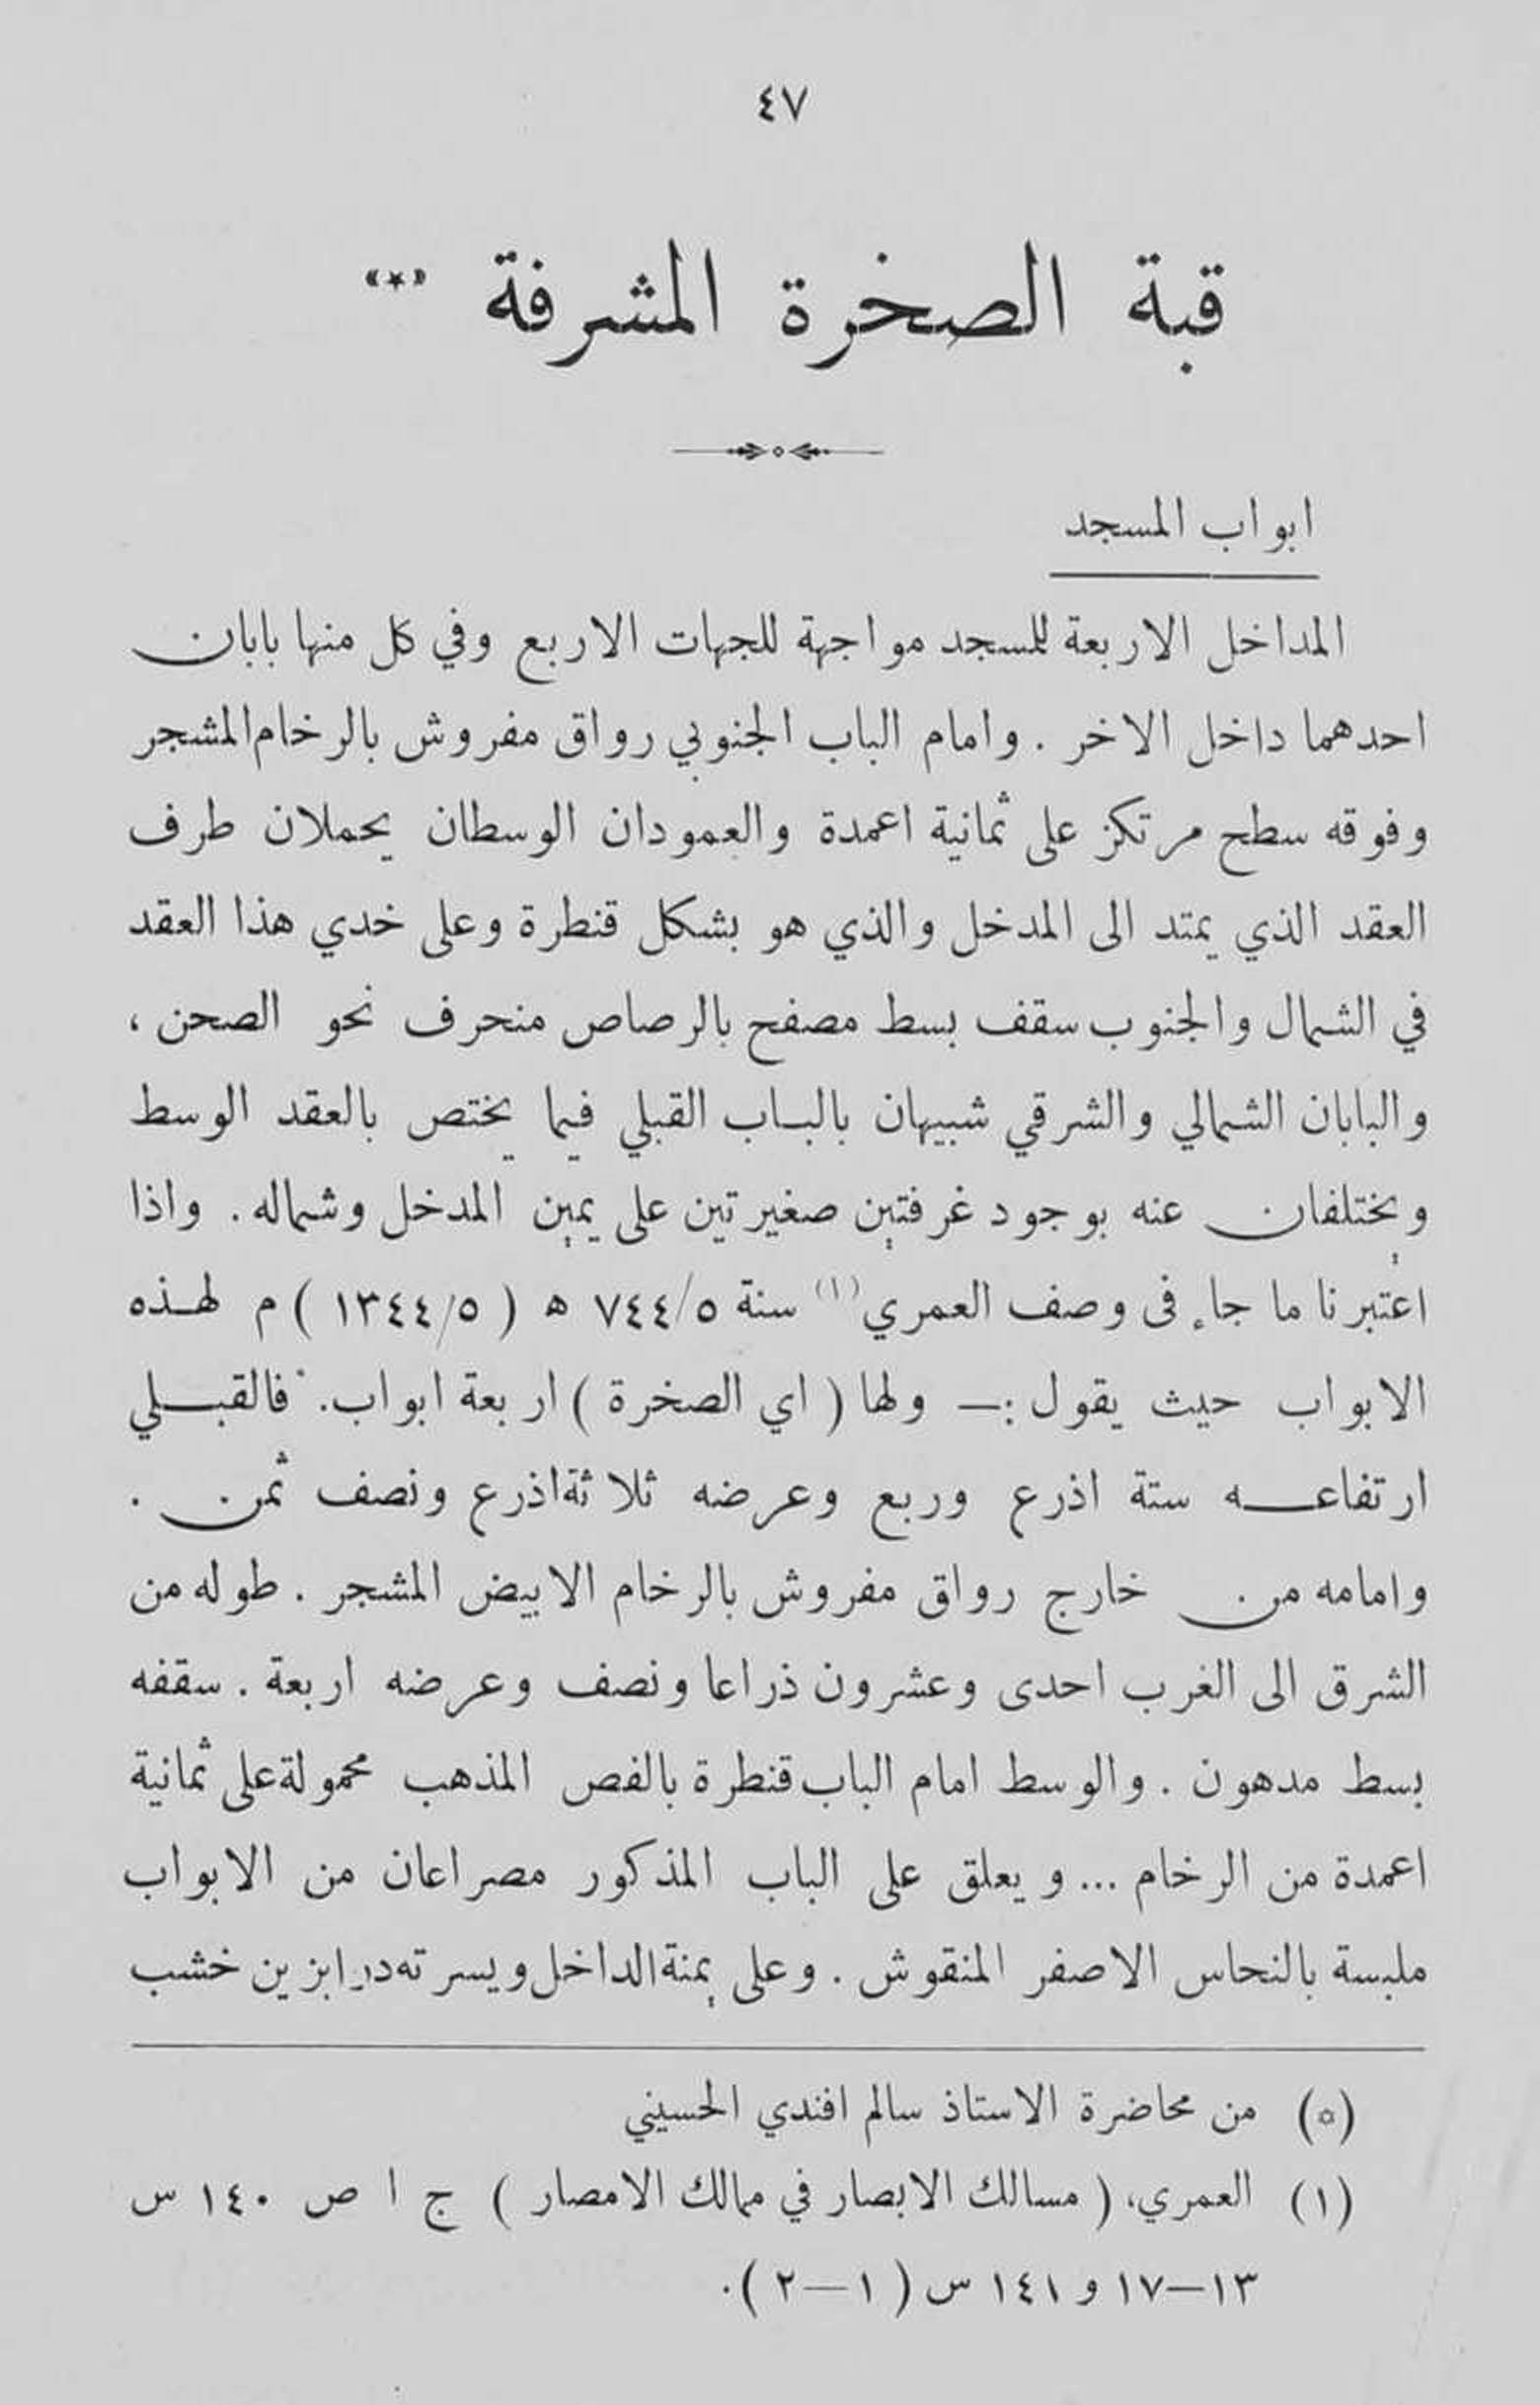 ٤٧
قبة الصخرة المشرفة «*»
ابواب المسجد
المداخل الاربعة للمسجد مواجهة للجهات الاربع وفي كل منها بابان
احدهما داخل الاخر . وامام الباب الجنوبي رواق مفروش بالرخام المشجر
وفوقه سطح مرتكز على ثمانية اعمدة والعمودان الوسطان يحملان طرف
العقد الذي يمتد الى المدخل والذي هو بشكل قنطرة وعلى خدي هذا العقد
في الشمال والجنوب سقف بسط مصفح بالرصاص منحرف نحو الصحن ،
والبابان الشمالي والشرقي شبيهان بالباب القبلي فيما يختص بالعقد الوسط
ويختلفان عنه بوجود غرفتين صغيرتين على يمين المدخل وشماله . واذا
اعتبرنا ما جاء فى وصف العمري (١) سنة ٧٤٤/٥ ه ( ١٣٤٤/٥ ) م لهذه
الابواب حيث يقول :— ولها ( اي الصخرة ) اربعة ابواب. فالقبلي
ارتفاعه ستة اذرع وربع وعرضه ثلاثة اذرع ونصف ثمن .
وامامه من خارج رواق مفروش بالرخام الابيض المشجر . طوله من
الشرق الى الغرب احدى وعشرون ذراعا ونصف وعرضه اربعة . سقفه
بسط مدهون . والوسط امام الباب قنطرة بالفص المذهب محمولة على ثمانية
اعمدة من الرخام ... ويعلق على الباب المذكور مصراعان من الابواب
ملبسة بالنحاس الاصفر المنقوش . وعلى يمنة الداخل ويسرته درابزين خشب
(*) من محاضرة الاستاذ سالم افندي الحسيني
(١) العمري، ( مسالك الابصار في ممالك الامصار ) ج ا ص ١٤٠ س
١٣—١٧ و ١٤١ س ( ١—٢ ).